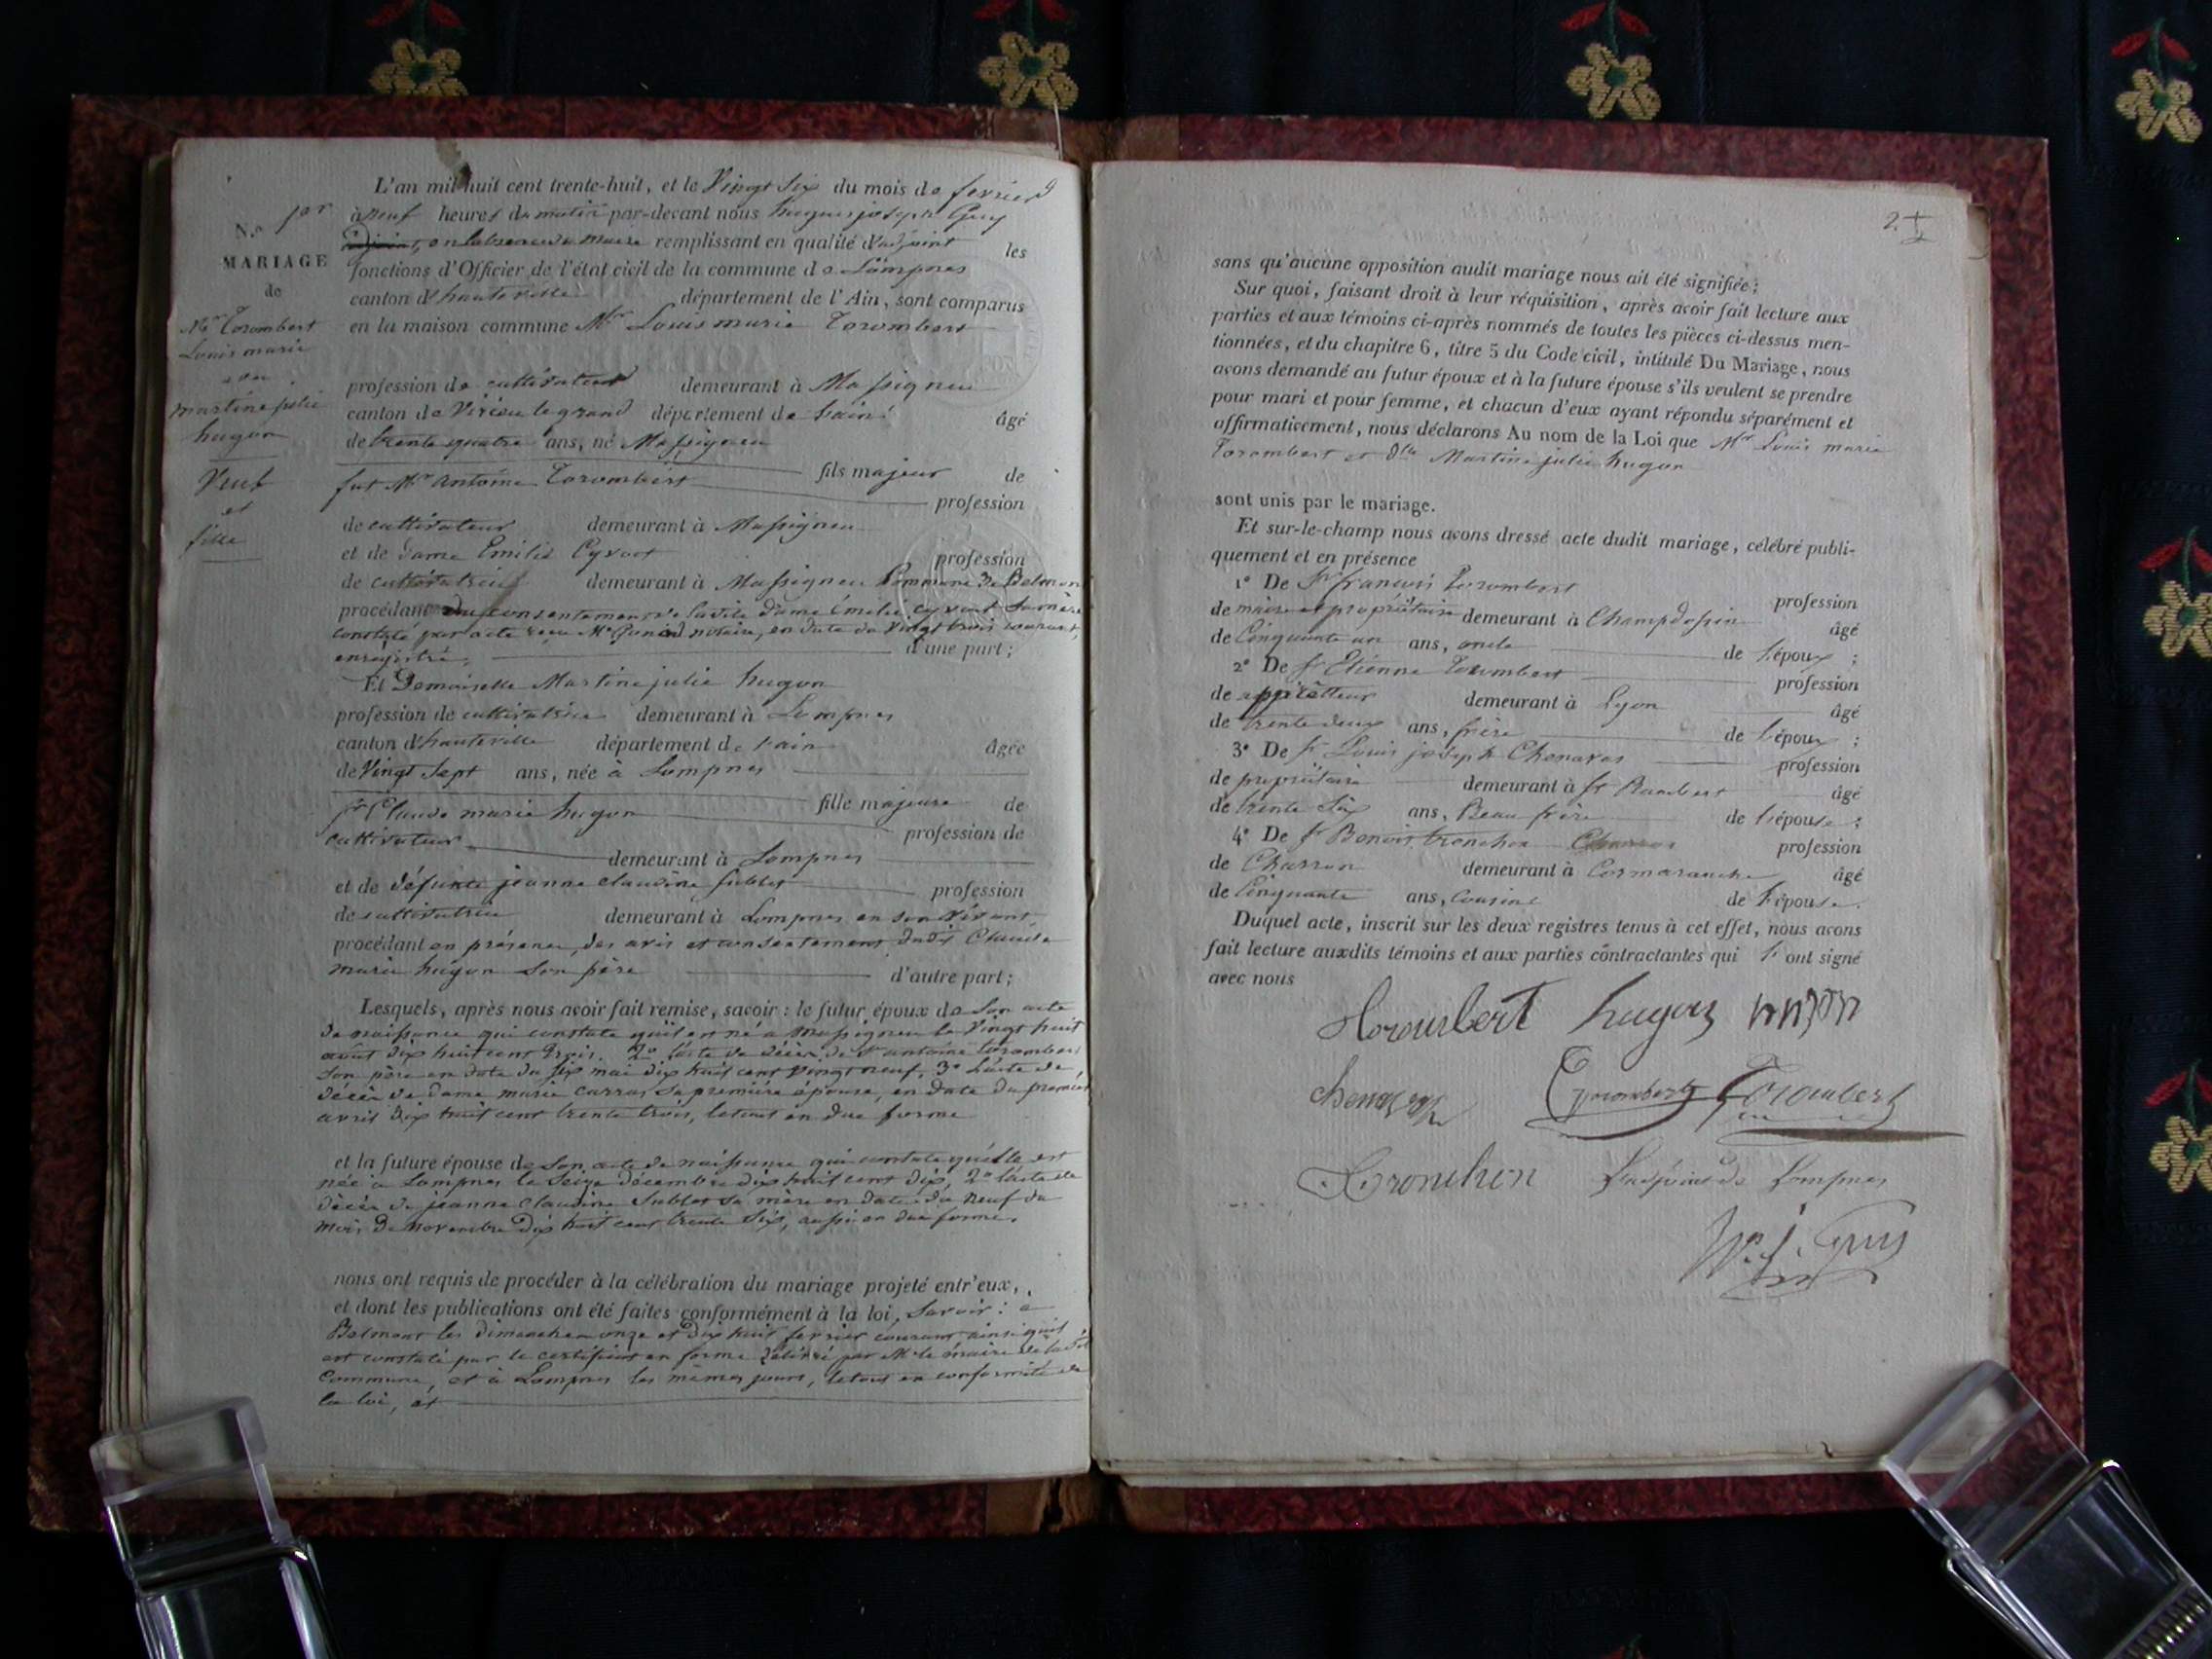 L'an mil huit cent trente-huit, et le Vingt Six du mois de fevrier
N.o 1er
à neuf heures du matin par-devant nous hugues joseph Guy
adjoint, en l'absence du maire remplissant en qualité d'adjoint les
MARIAGE
fonctions d'Officier de l'état civil de la commune de Lompnes
de
canton d'hauteville département de l'Ain, sont comparus
Mr Torombert
en la maison commune Mr Louis marie Torombert
Louis marie
profession de cultivateur demeurant à Massignieu
martine julie
canton de Virieu le grand département de l'ain âgé
hugon
de trente quatre ans, né Massignieu
fils majeur de
Veuf
fut Mr antoine Torombert
profession
et
de cultivateur demeurant à Massignieu
fille
et de dame Emilie Cyvoct profession
de cultivatrice demeurant à Massignieu Commune de Belmont
procédant du consentement de ladite dame Emilie Cyvoct sa mère
constaté par acte reçu Me notaire, en date du vingt trois courant,
enregistré, d'une part;
Et Demoiselle Martine julie hugon
profession de cultivatrice demeurant à Lompnes
canton d'hauteville département de l'ain âgée
de Vingt Sept ans, née à Lompnes
fille majeure de
sr Claude marie hugon
profession de
cultivateur
demeurant à Lompnes
et de défunte jeanne claudine Sublet profession
de cultivatrice demeurant à Lompnes en son vivant
procédant en présence, des avis et consentement dudit Claude
marie hugon son père d'autre part;
Lesquels, après nous avoir fait remise, savoir : le futur époux de son acte
de naissance qui constate qu'il est né a Massignieu le Vingt huit
août dix huit cent trois. 2o l'acte de décès de Sr antoine torombert
son père en date du six mai dix huit cent vingt neuf, 3o l'acte de
décès de dame marie carras sa première épouse, en date du premier
avril dix huit cent trente trois, le tout en due forme
et la future épouse de son acte de naissance qui constate qu'elle est
née a Lompnes le Seize décembre dix huit cent dix, 2o l'acte de
décès de jeanne claudine Sublet sa mère en date du neuf du
mois de novembre dix huit cent trente six, aussi en due forme.
nous ont requis de procéder à la célébration du mariage projeté entr'eux,
et dont les publications ont été faites conformément à la loi, Savoir : a
Belmont les dimanches onze et dix huit fevrier courant ainsi qu'il
est constaté par le certificat en forme délivré par Mr le maire de la dte
Commune, et à Lompnes les mêmes jours, le tout en conformité de
la loi, et
2
sans qu'aucune opposition audit mariage nous ait été signifiée;
Sur quoi, faisant droit à leur réquisition, après avoir fait lecture aux
parties et aux témoins ci-après nommés de toutes les pièces ci-dessus men-
tionnées, et du chapitre 6, titre 5 du Code civil, intitulé Du Mariage, nous
avons demandé au futur époux et à la future épouse s'ils veulent se prendre
pour mari et pour femme, et chacun d'eux ayant répondu séparément et
affirmativement, nous déclarons Au nom de la Loi que Mr Louis marie
Torombert et dlle Martine julie hugon
sont unis par le mariage.
Et sur-le-champ nous avons dressé acte dudit mariage, célébré publi-
quement et en présence
1o De Sr françois Torombert
profession
de maire et propriétaire demeurant à Champdossin
âgé
de Cinquante un ans, oncle de l'époux ;
2o De Sr Etienne Torombert
profession
de appréteur demeurant à Lyon
âgé
de trente deux ans, frère de l'époux ;
3o De Sr Louis joseph Chenavas
profession
de propriétaire demeurant à St Rambert
âgé
de trente Six ans, Beau frère de l'épouse ;
4o De Sr Benoit tronchon
profession
de Charron demeurant à Cormaranche
âgé
de Cinquante ans, Cousine de l'épouse.
Duquel acte, inscrit sur les deux registres tenus à cet effet, nous avons
fait lecture auxdits témoins et aux parties contractantes qui l'ont signé
avec nous
torombert hugon
chenavas Torombert Torombert
Tronchon L'adjoint de Lompnes
Guy